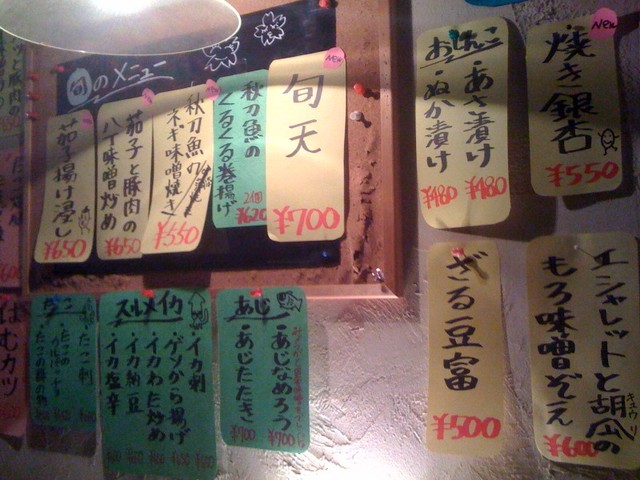 旬のメニュー
New
旬天
¥700
秋刀魚の
くるくる巻揚げ
2個
¥620
秋刀魚の
ネギ味噌焼き
¥550
茄子と豚肉の
八丁味噌炒め
¥650
茄子揚げ浸し
¥650
おしんこ
・あさ漬け
・ぬか漬け
¥480
¥480
New
焼き銀杏
¥550
ざる豆富
¥500
エシャレットと胡瓜の
キュウリ
もろ味噌ぞえ
¥600
あじ
・あじなめろう
・あじたたき
¥700
¥700
スルメイカ
・イカ刺
・ゲソから揚げ
・イカわた炒め
・イカ納豆
・イカ塩辛
・たこ刺
はむカツ